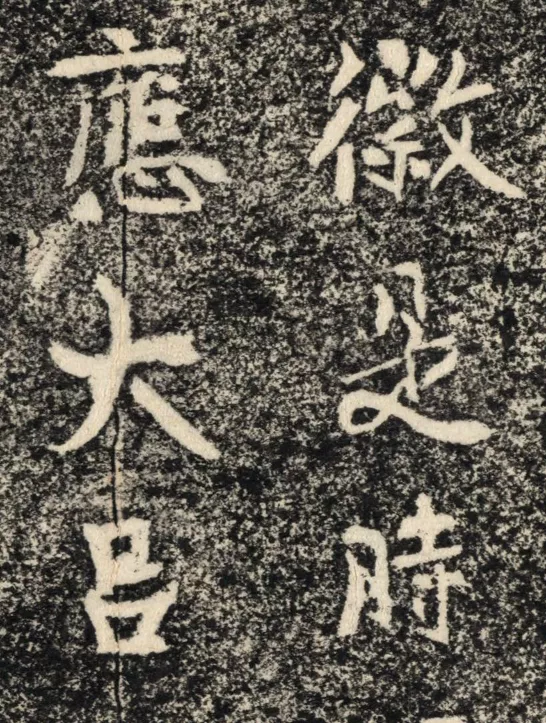 徵是時
應大呂